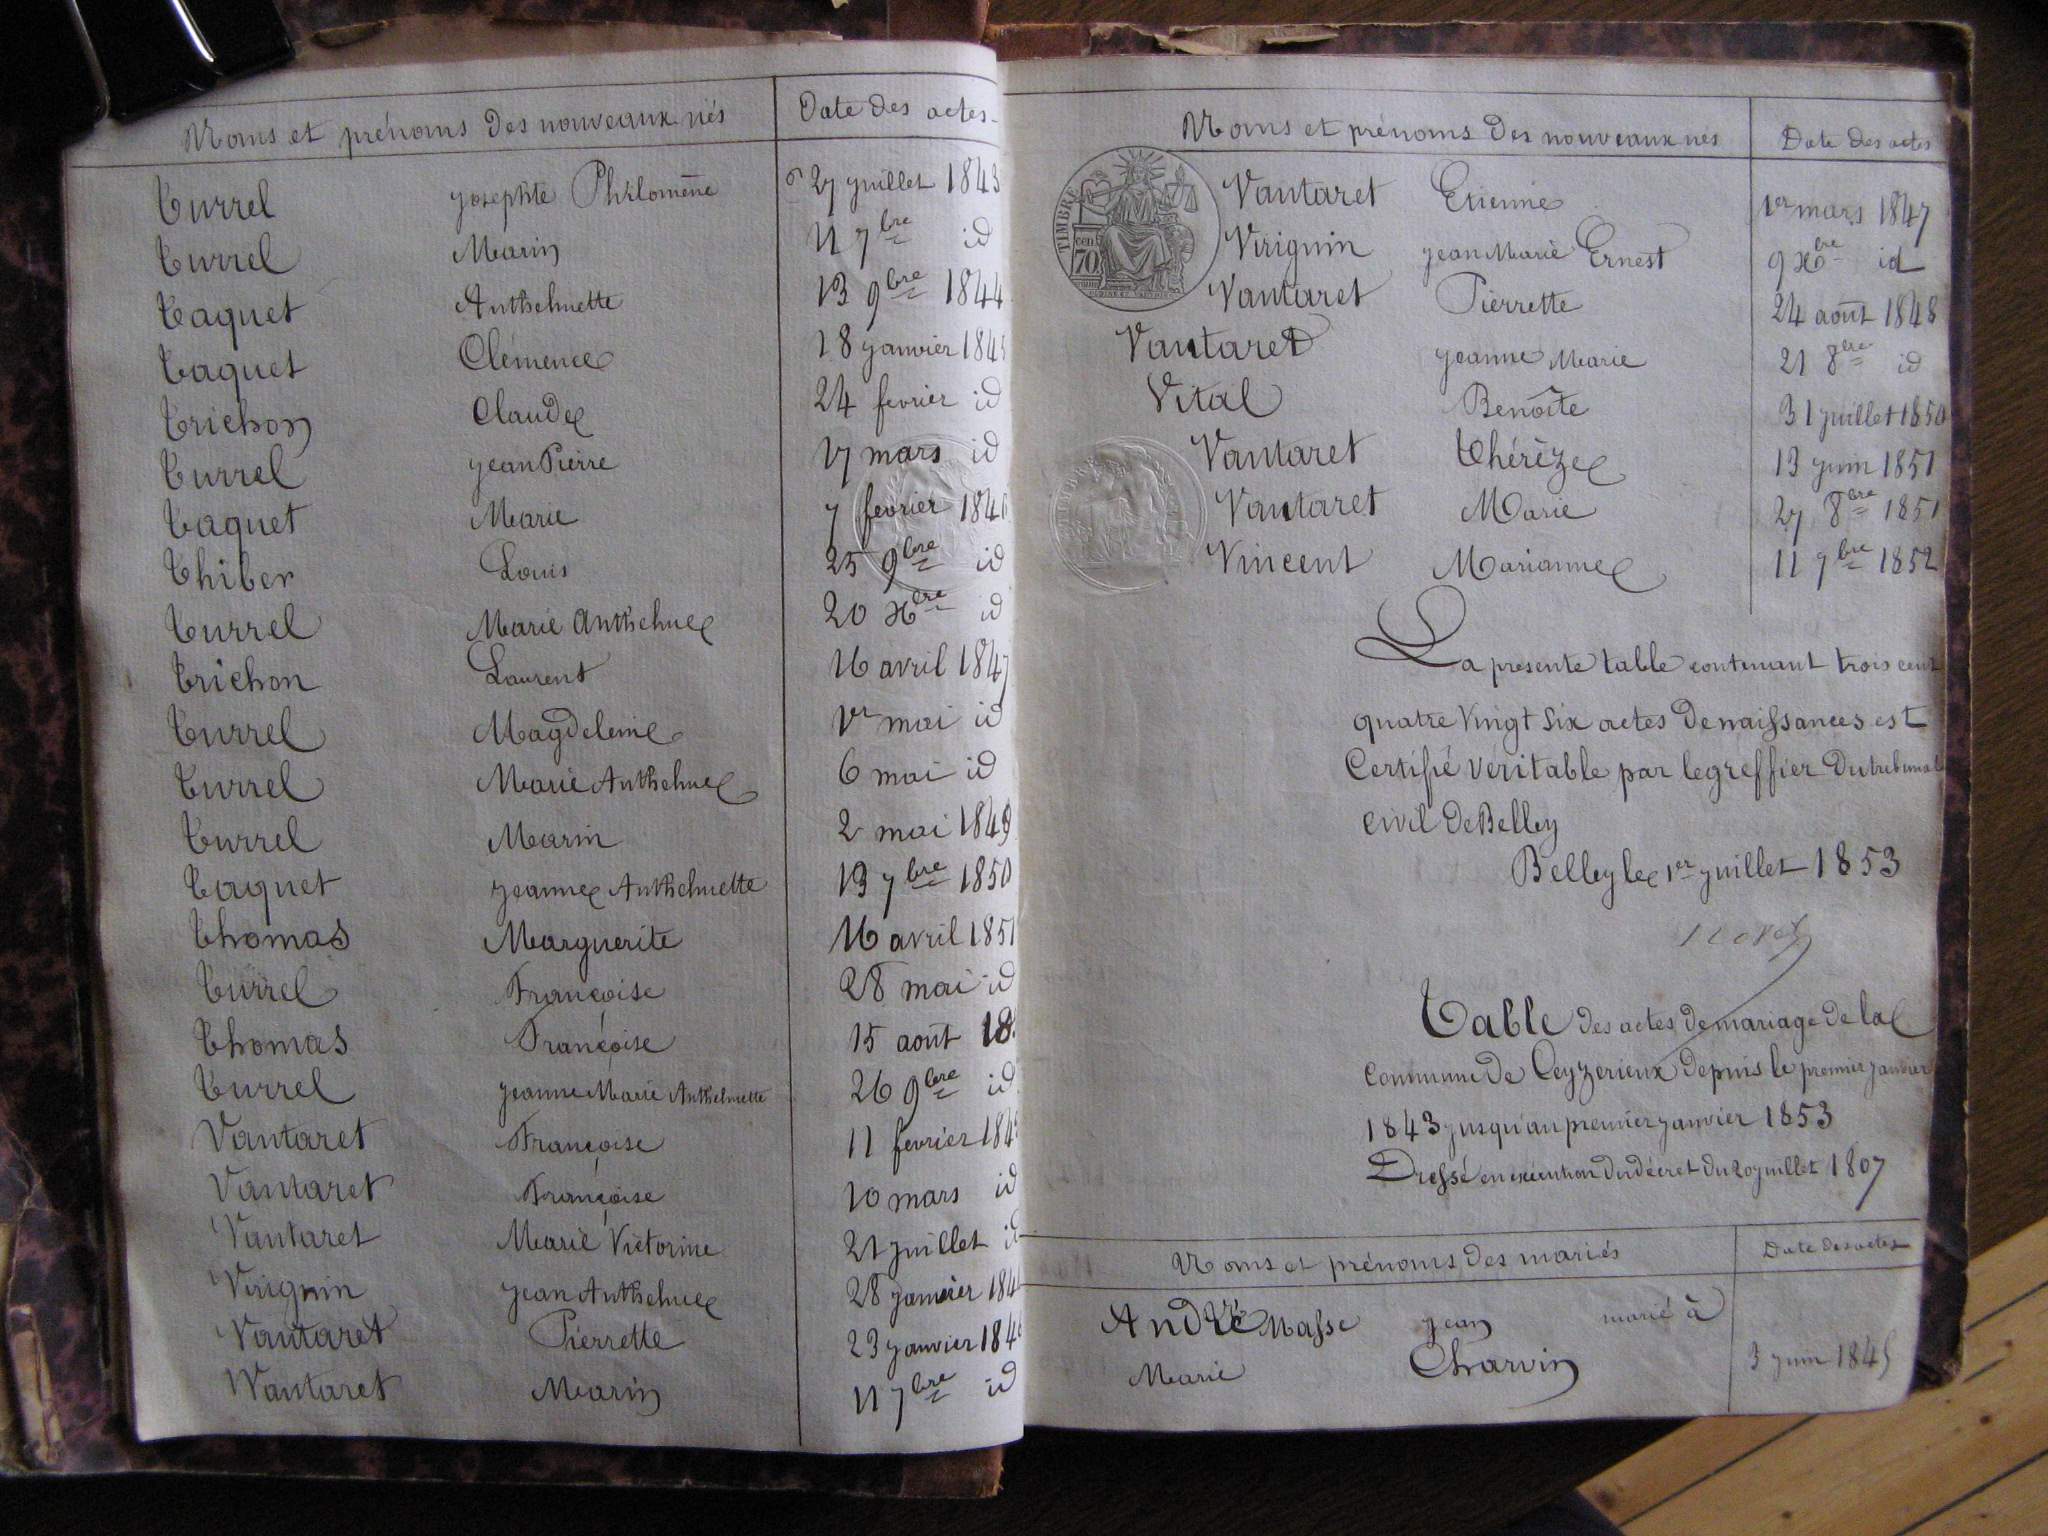 Noms et prénoms des nouveaux nés Date des actes
Turrel Josephte Philomène 27 juillet 1843
Turrel Marin 11 7bre id
Taquet Anthelmette 13 9bre 1844
Taquet Clémence 18 janvier 1845
Trichon Claude 24 fevrier id
Turrel jean Pierre 17 mars id
Taquet Marie 7 fevrier 1846
Thiber Louis 25 9bre id
Turrel Marie Anthelme 20 Xbre id
Trichon Laurent 16 avril 1847
Turrel Magdeleine 1er mai id
Turrel Marie Anthelme 6 mai id
Turrel Marin 2 mai 1849
Taquet jeanne Anthelmette 13 7bre 1850
Thomas Marguerite 16 avril 1851
Turrel Françoise 28 mai id
Thomas Françoise 15 août 18
Turrel jeanne Marie Anthelmette 26 9bre id
Vantaret Françoise 11 fevrier 184
Vantaret Françoise 10 mars id
Vantaret Marie Victorine 21 juillet id
Virignin jean Anthelme 28 janvier 184
Vantaret Pierrette 23 janvier 184
Vantaret Marin 11 7bre id
Noms et prénoms des nouveaux nés Date des actes
TIMBRE
70 cen
Vantaret Etienne 1er mars 1847
Virignin jean Marie Ernest 9 Xbre id
Vantaret Pierrette 24 août 1848
Vantaret jeanne Marie 21 8bre id
Vital Benoîte 31 juillet 1850
Vantaret Thérèze 13 juin 1851
Vantaret Marie 27 8bre 1851
Vincent Marianne 11 7bre 1852
La presente table contenant trois cent
quatre vingt six actes de naissances est
Certifié véritable par le greffier du tribunal
civil de Belley
Belley le 1er juillet 1853
Table des actes de mariage de la
commune de Ceyzerieux depuis le premier janvier
1843 jusqu'au premier janvier 1853
Dressé en exécution du décret du 20 juillet 1807
Noms et prénoms des mariés Date des actes
André Masse jean marié à
Marie Charvin 3 juin 1845